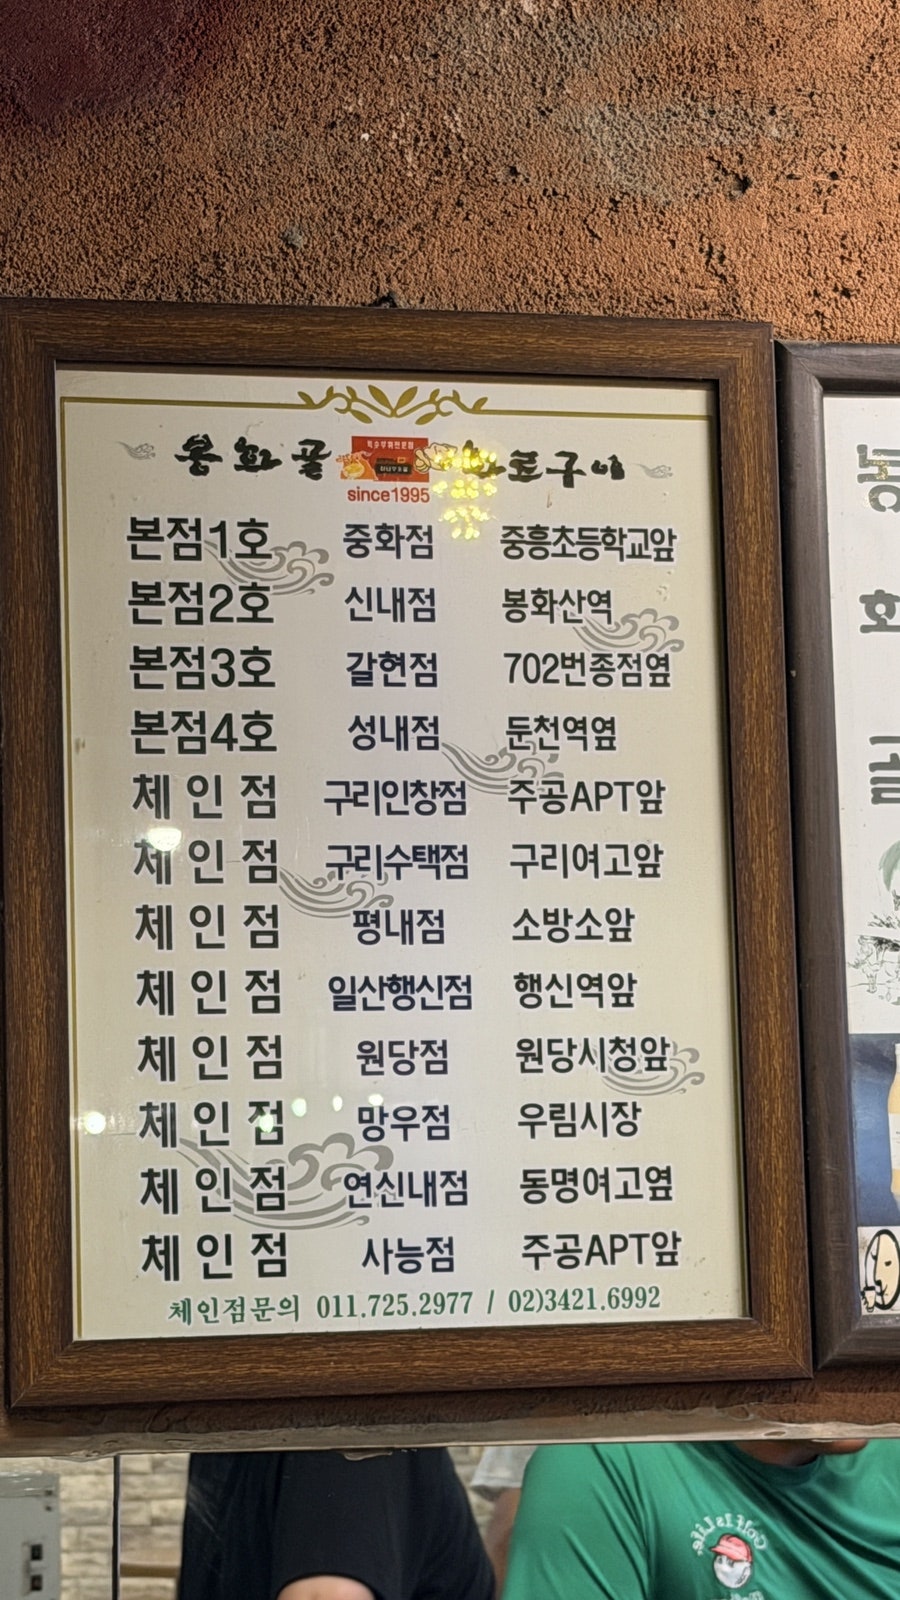 봉화골 화로구이
since1995
본점1호 중화점 중흥초등학교앞
본점2호 신내점 봉화산역
본점3호 갈현점 702번종점옆
본점4호 성내점 둔천역옆
체인점 구리인창점 주공APT앞
체인점 구리수택점 구리여고앞
체인점 평내점 소방소앞
체인점 일산행신점 행신역앞
체인점 원당점 원당시청앞
체인점 망우점 우림시장
체인점 연신내점 동명여고옆
체인점 사능점 주공APT앞
체인점문의 011.725.2977 / 02)3421.6992
봉
화
골
Golf Is Life